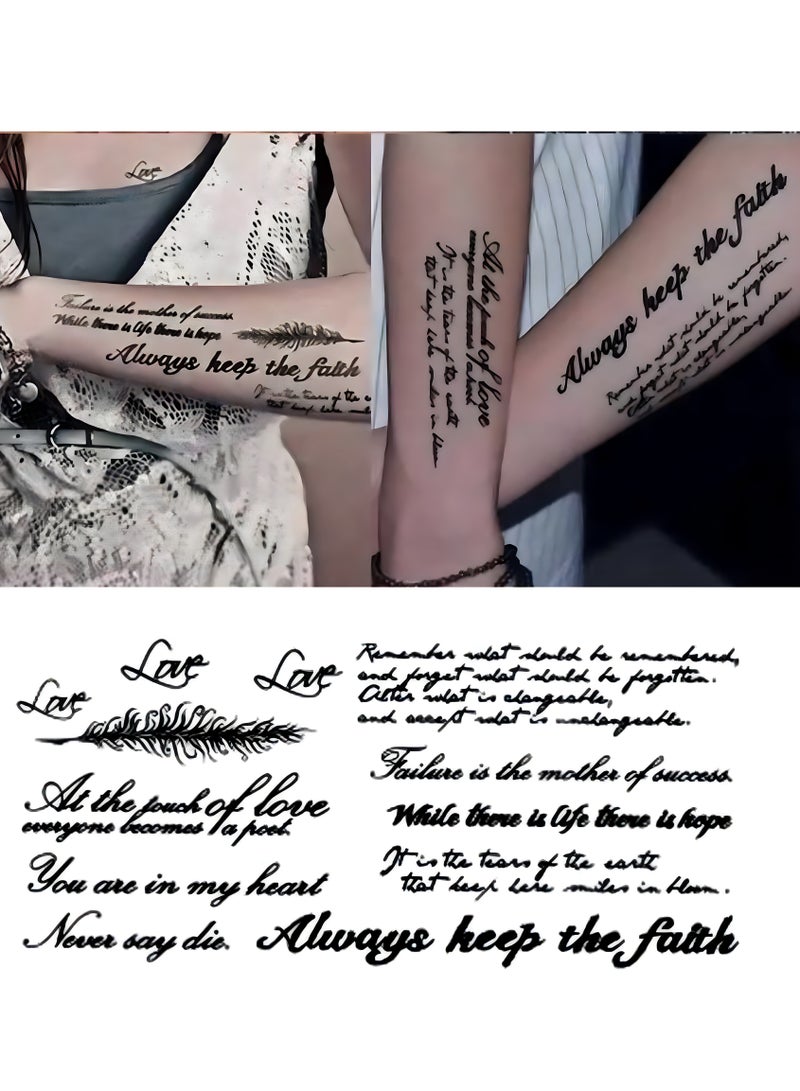 Love
Failure is the mother of success
While there is life there is hope
Always keep the faith
It is the tears of the
that keep here smiles
At the touch of love
everyone becomes a poet
It is the tears of the earth
that keep here smiles in bloom
Always keep the faith
Remember what should be remembered,
and forget what should be forgotten.
Love
Love
Love
Remember what should be remembered,
and forget what should be forgotten.
Alter what is changeable,
and accept what is unchangeable.
At the touch of love
everyone becomes a poet.
Failure is the mother of success.
While there is life there is hope
You are in my heart
It is the tears of the earth
that keep here smiles in bloom.
Never say die.
Always keep the faith